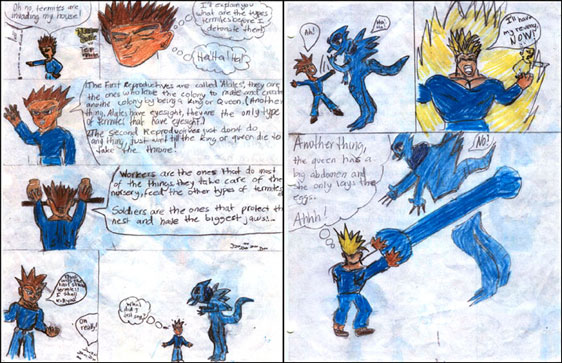 Oh no, termites are
invading my house!
I'll explain you
what are the types
termites before I
eliminate them!
Ha!Ha!Ha!
The First Reproductives are called "Alates", they are
the ones who leave the colony to mate and create
another colony by being a King or Queen. (Another
thing, Alates have eyesight, they are the only type
of termites that have eyesight.)
The Second Reproductives just don't do
anything, just wait till the King or queen die to
take the throne!
Workers are the ones that do most
of the things they take care of the
nursery, feed the other types of termites
Soldiers are the ones that protect the
nest and have the biggest jaws!..
Oh
really!
What?
did I
Ah!
Ha!
Ha!
I'll have
my revenge
NOW!
Another thing,
the queen has a
big abdomen and
she only lays the
eggs.
Ahhh!
No!